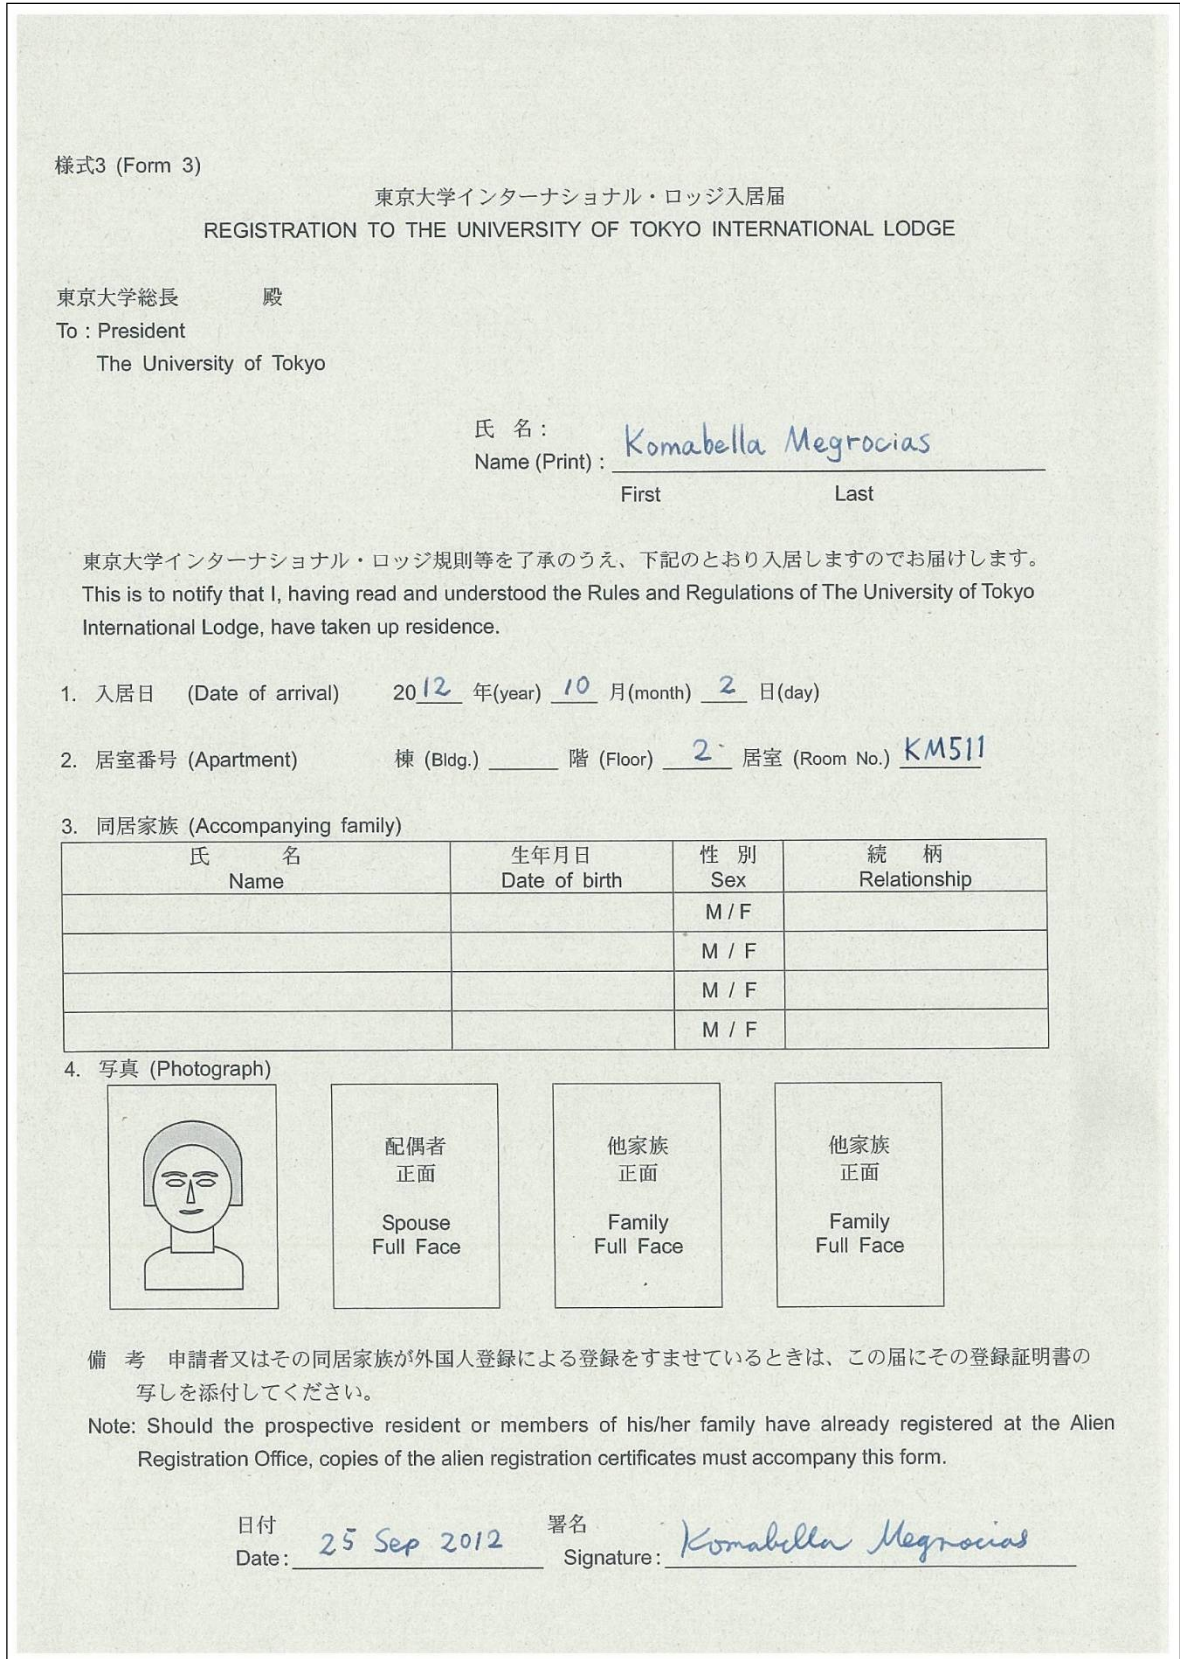 様式3 (Form 3)
東京大学インターナショナル・ロッジ入居届
REGISTRATION TO THE UNIVERSITY OF TOKYO INTERNATIONAL LODGE
東京大学総長 殿
To : President
The University of Tokyo
氏 名 :
Name (Print) : Komabella Megrocias
First Last
東京大学インターナショナル・ロッジ規則等を了承のうえ、下記のとおり入居しますのでお届けします。
This is to notify that I, having read and understood the Rules and Regulations of The University of Tokyo
International Lodge, have taken up residence.
1. 入居日 (Date of arrival) 2012 年(year) 10 月(month) 2 日(day)
2. 居室番号 (Apartment) 棟 (Bldg.) 階 (Floor) 2 居室 (Room No.) KM511
3. 同居家族 (Accompanying family)
氏 名 生年月日 性 別 続 柄
Name Date of birth Sex Relationship
M / F
M / F
M / F
M / F
4. 写真 (Photograph)
配偶者 他家族 他家族
正面 正面 正面
Spouse Family Family
Full Face Full Face Full Face
備 考 申請者又はその同居家族が外国人登録による登録をすませているときは、この届にその登録証明書の
写しを添付してください。
Note: Should the prospective resident or members of his/her family have already registered at the Alien
Registration Office, copies of the alien registration certificates must accompany this form.
日付 署名
Date: 25 Sep 2012 Signature: Komabella Megrocias